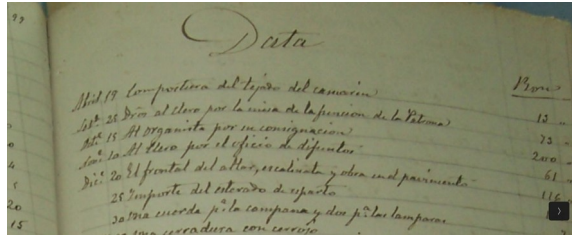 Data
Rvon
Abril 19 Compostura del tejado del camarin 13
Setᵉ 25 Dros al clero por la misa de la funcion de la Patrona 73
Octᵉ 15 Al Organista por su consignacion 200
Novᵉ 10 Al Clero por el oficio de difuntos 61
Dicᵉ 20 El frontal del altar, escalinata y obra en el pavimento 116
25 Importe del esterado de esparto
30 Una cuerda pª la campana y dos pª las lamparas
cerradura con cerrojo
20
15